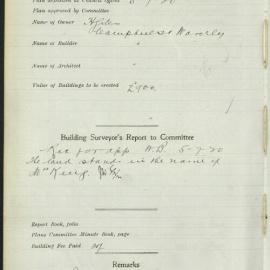 Plan approved by Committee
Name of Owner
Campbell St Waverley
Name of Builder "
Name of Architect "
Value of Buildings to be erected £900
Building Surveyor's Report to Committee
Rec for app W.B. 5-7-20
The land stands in the name of
Report Book, folio
Plans Committee Minute Book, page
Building Fee Paid
Remarks